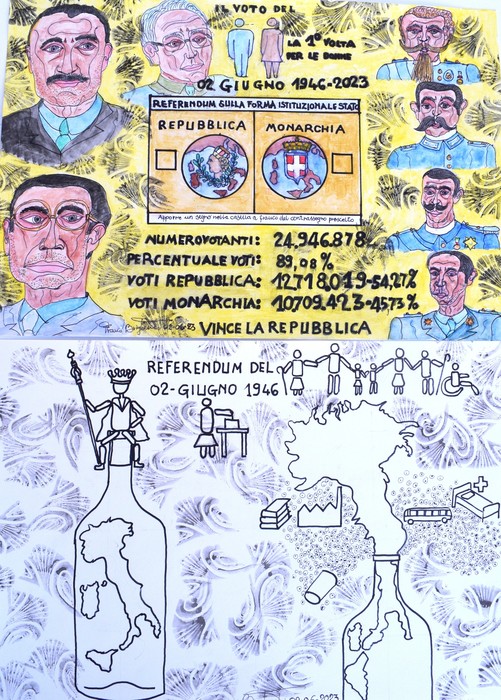 IL VOTO DEL
LA 1° VOLTA
PER LE DONNE
02 GIUGNO 1946-2023
REFERENDUM SULLA FORMA ISTITUZIONALE STATO
REPUBBLICA
MONARCHIA
Apporre un segno nella casella a fianco del contrassegno prescelto
NUMEROVOTANTI: 24,946.878
PERCENTUALE VOTI: 89,08%
VOTI REPUBBLICA: 12718019-54,27%
VOTI MONARCHIA: 10709.423-4573%
02-06-23
VINCE LA REPUBBLICA
REFERENDUM DEL
02-GIUGNO 1946
02-06-2023